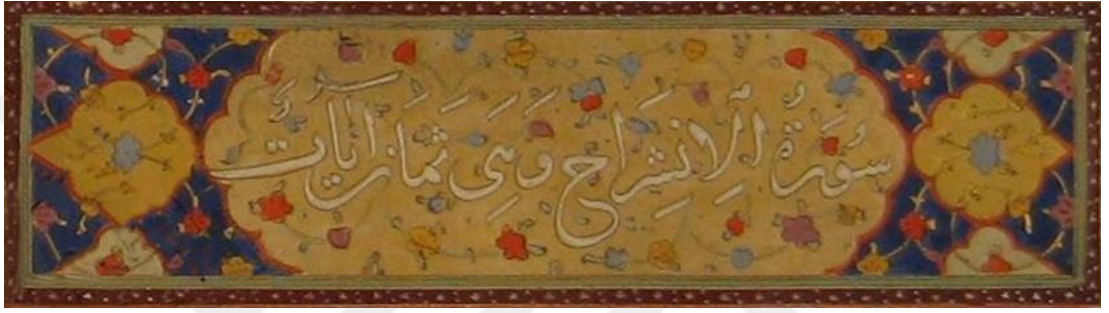 سُورَةُ اَلِانشِراحِ وَهِيَ ثَمانِ آيَاتٍ